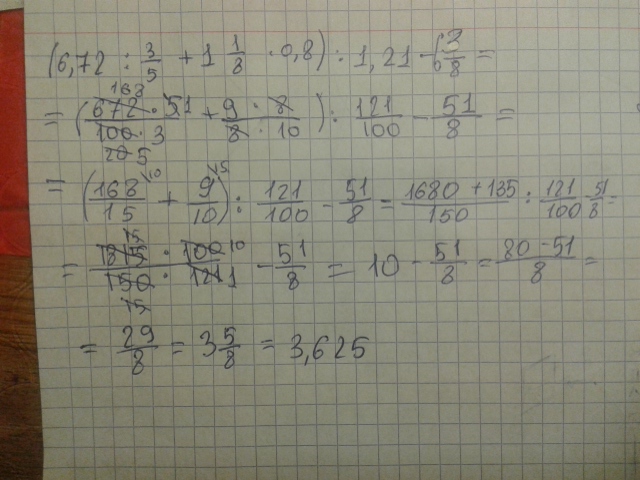 (6,72 : 3/5 + 1 1/8 · 0,8) : 1,21 - 6 3/8 =
= (672 · 5 / 100 · 3 + 9 · 8 / 8 · 10) : 121/100 - 51/8 =
= (168/15 + 9/10) : 121/100 - 51/8 = 1680 + 135 / 150 : 121/100 - 51/8 =
= 1815 · 100 / 150 · 121 - 51/8 = 10 - 51/8 = 80 - 51 / 8 =
= 29/8 = 3 5/8 = 3,625